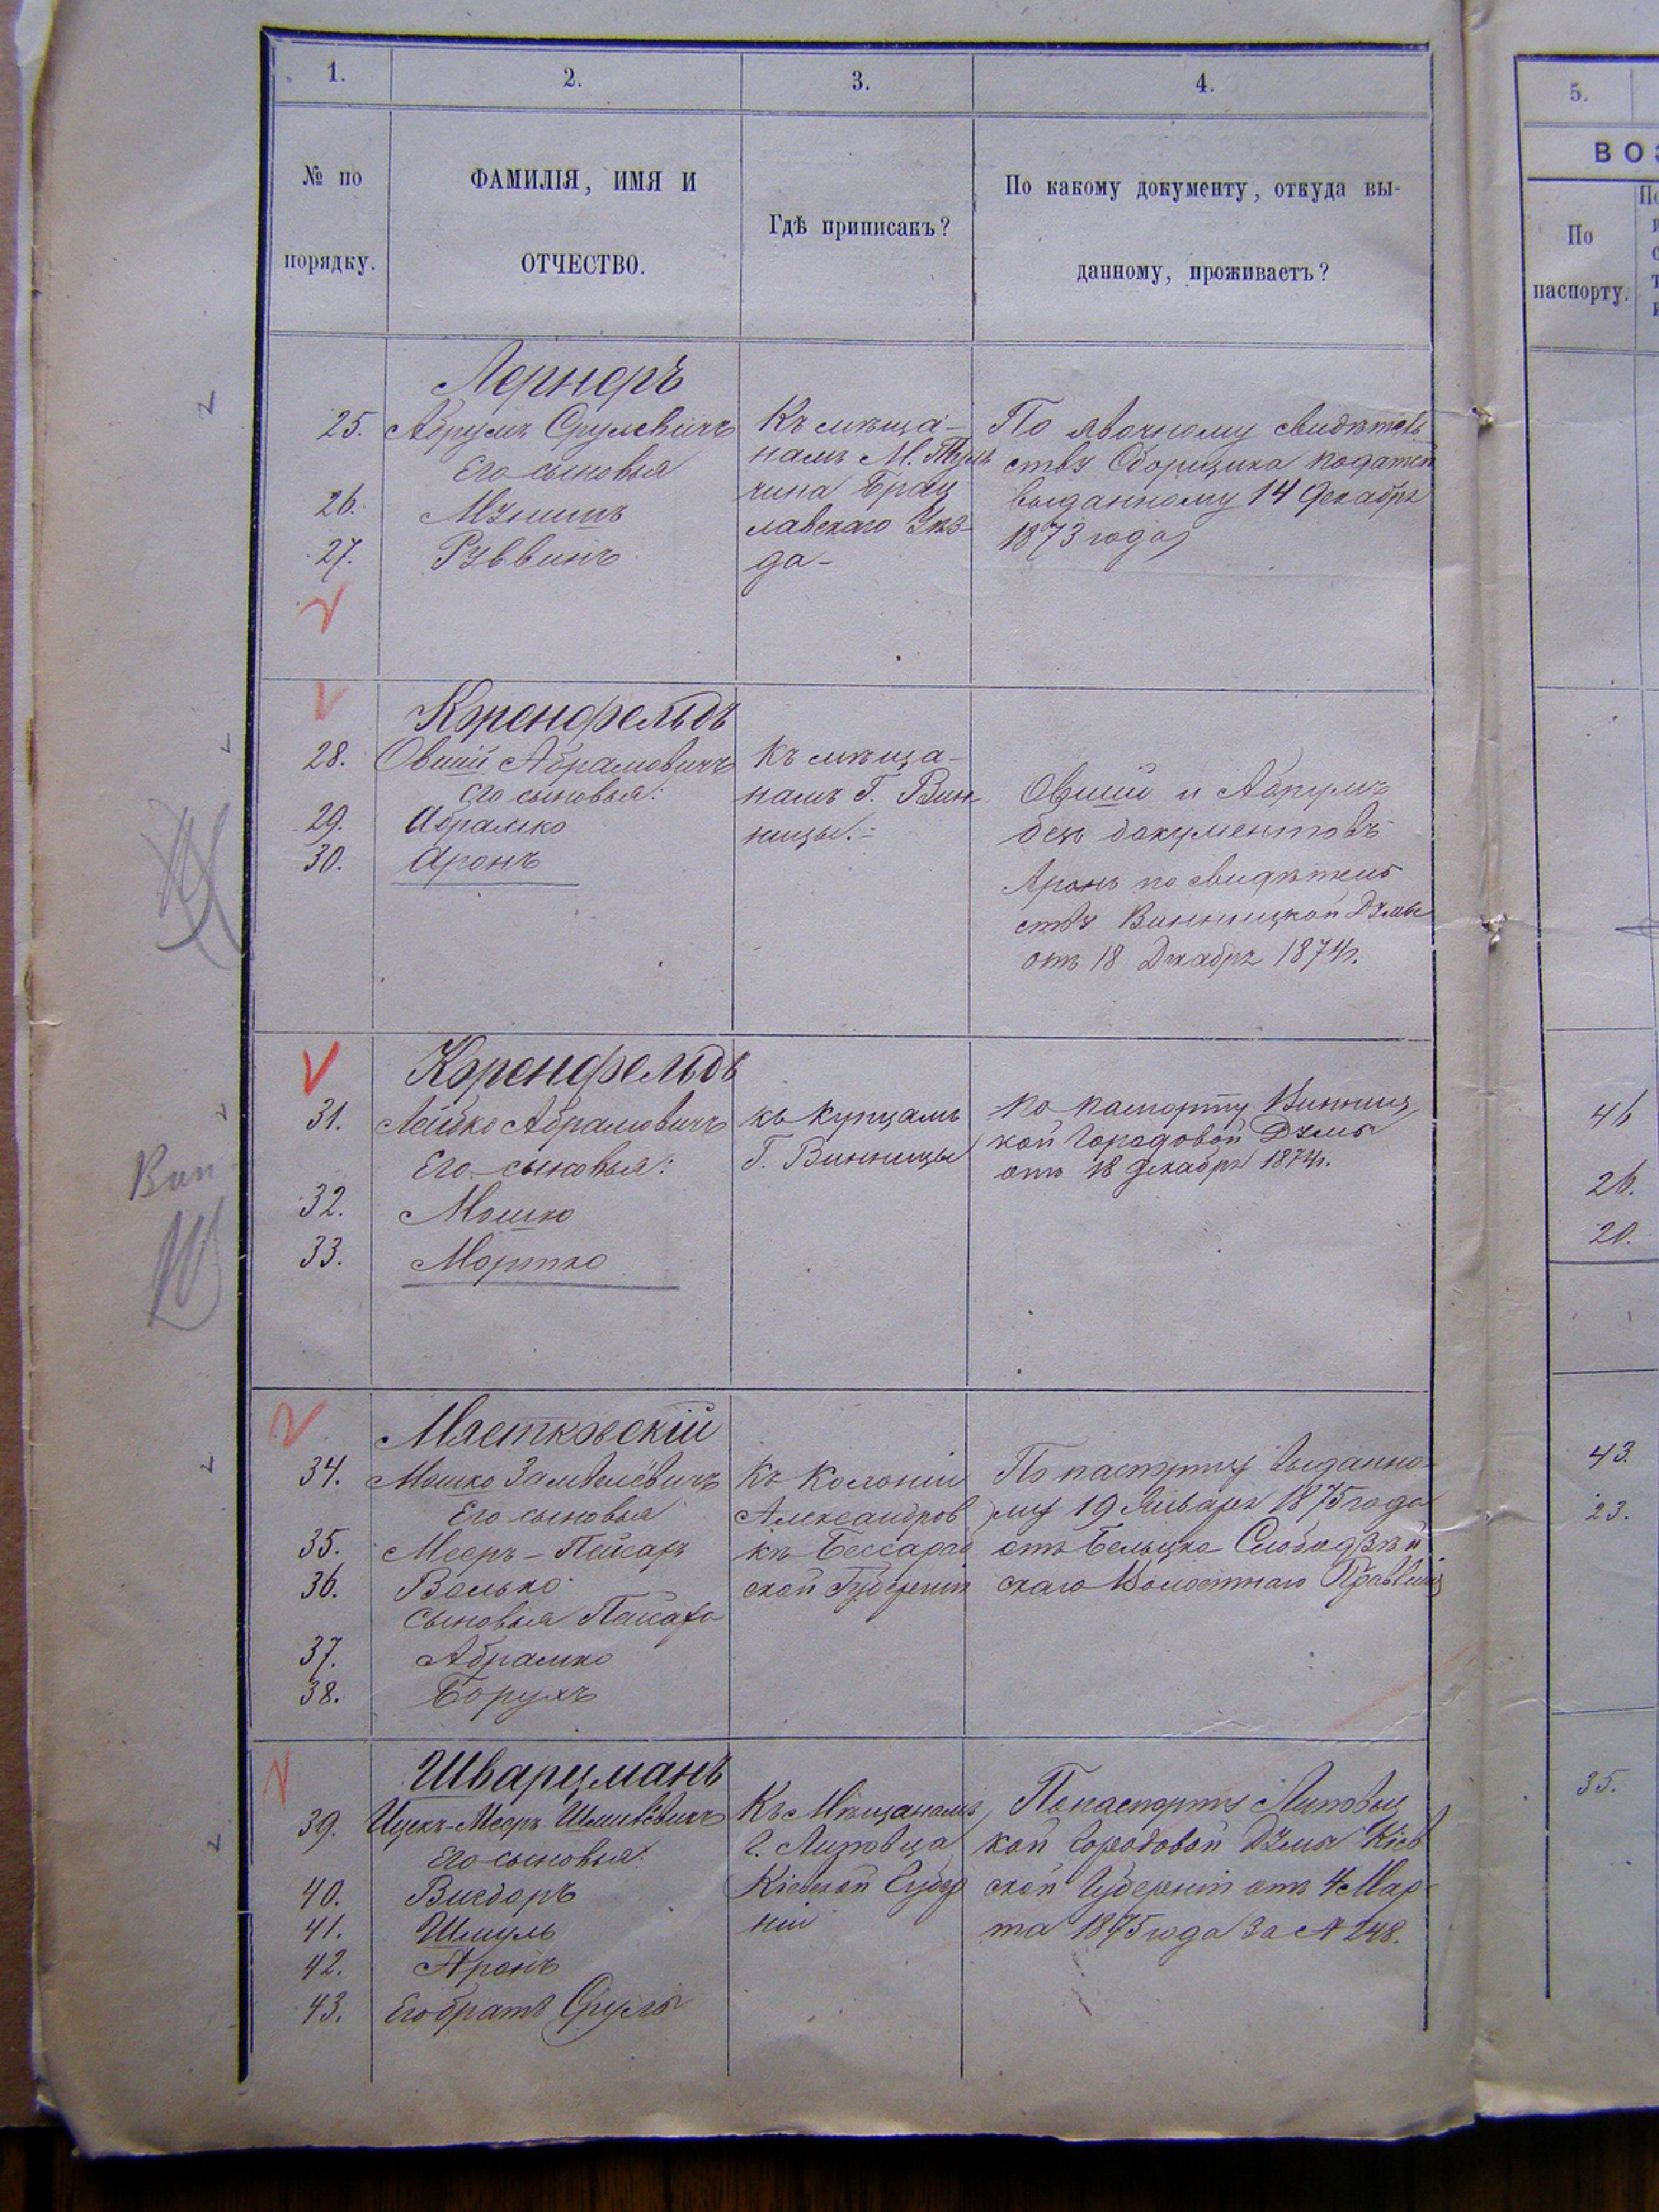 1. 2. 3. 4.
№ по
порядку.
ФАМИЛІЯ, ИМЯ И
ОТЧЕСТВО.
Гдѣ приписанъ?
По какому документу, откуда вы-
данному, проживаетъ?
Лернеръ
25. Абрумъ Срулевичъ
Его сыновья
26. Мунишъ
27. Руввинъ
Къ мѣща-
намъ М. Туль
чина Брац
лавскаго Уѣз-
да-
По явочному свидѣтель
ству Сборщика податей
выданному 14 Декабря
1873 года
Коренфельдъ
28. Овшій Абрамовичъ
Его сыновья:
29. Абрамко
30. Аронъ
Къ мѣща-
намъ Г. Вин
ницы.-
Овшій и Абрумъ
безъ документовъ
Аронъ по свидѣтель
ству Винницкой Думы
отъ 18 Декабря 1874г.
Коренфельдъ
31. Лейбко Абрамовичъ
Его сыновья:
32. Мошко
33. Мортко
къ купцамъ
Г. Винницы
по паспорту Винниц
кой Городовой Думы
отъ 18 Декабря 1874г.
Вин
Мястковскій
34. Мошко Замвелевичъ
Его сыновья
35. Мееръ-Пейсахъ
36. Волько
Сыновья Пейсаха
37. Абрамко
38. Борухъ
Къ Колоніи
Александров
кѣ Бессараб
ской Губерніи
По паспорту выданно-
му 19 Января 1875 года
отъ Бельцко Слободзѣй
скаго Волостнаго Правленія
Шварцманъ
39. Ицекъ-Мееръ Шмилевичъ
Его сыновья:
40. Вигдоръ
41. Шмуль
42. Аронъ
43. Его братъ Сруль
Къ Мѣщанамъ
г. Липовца
Кіевской Губер
ніи
По паспорту Липовец
кой Городовой Думы Кіев
ской Губерніи отъ 4 Мар-
та 1875 года за № 248.
5.
ВОЗ
По
паспорту.
46
26.
20.
43.
23.
35.